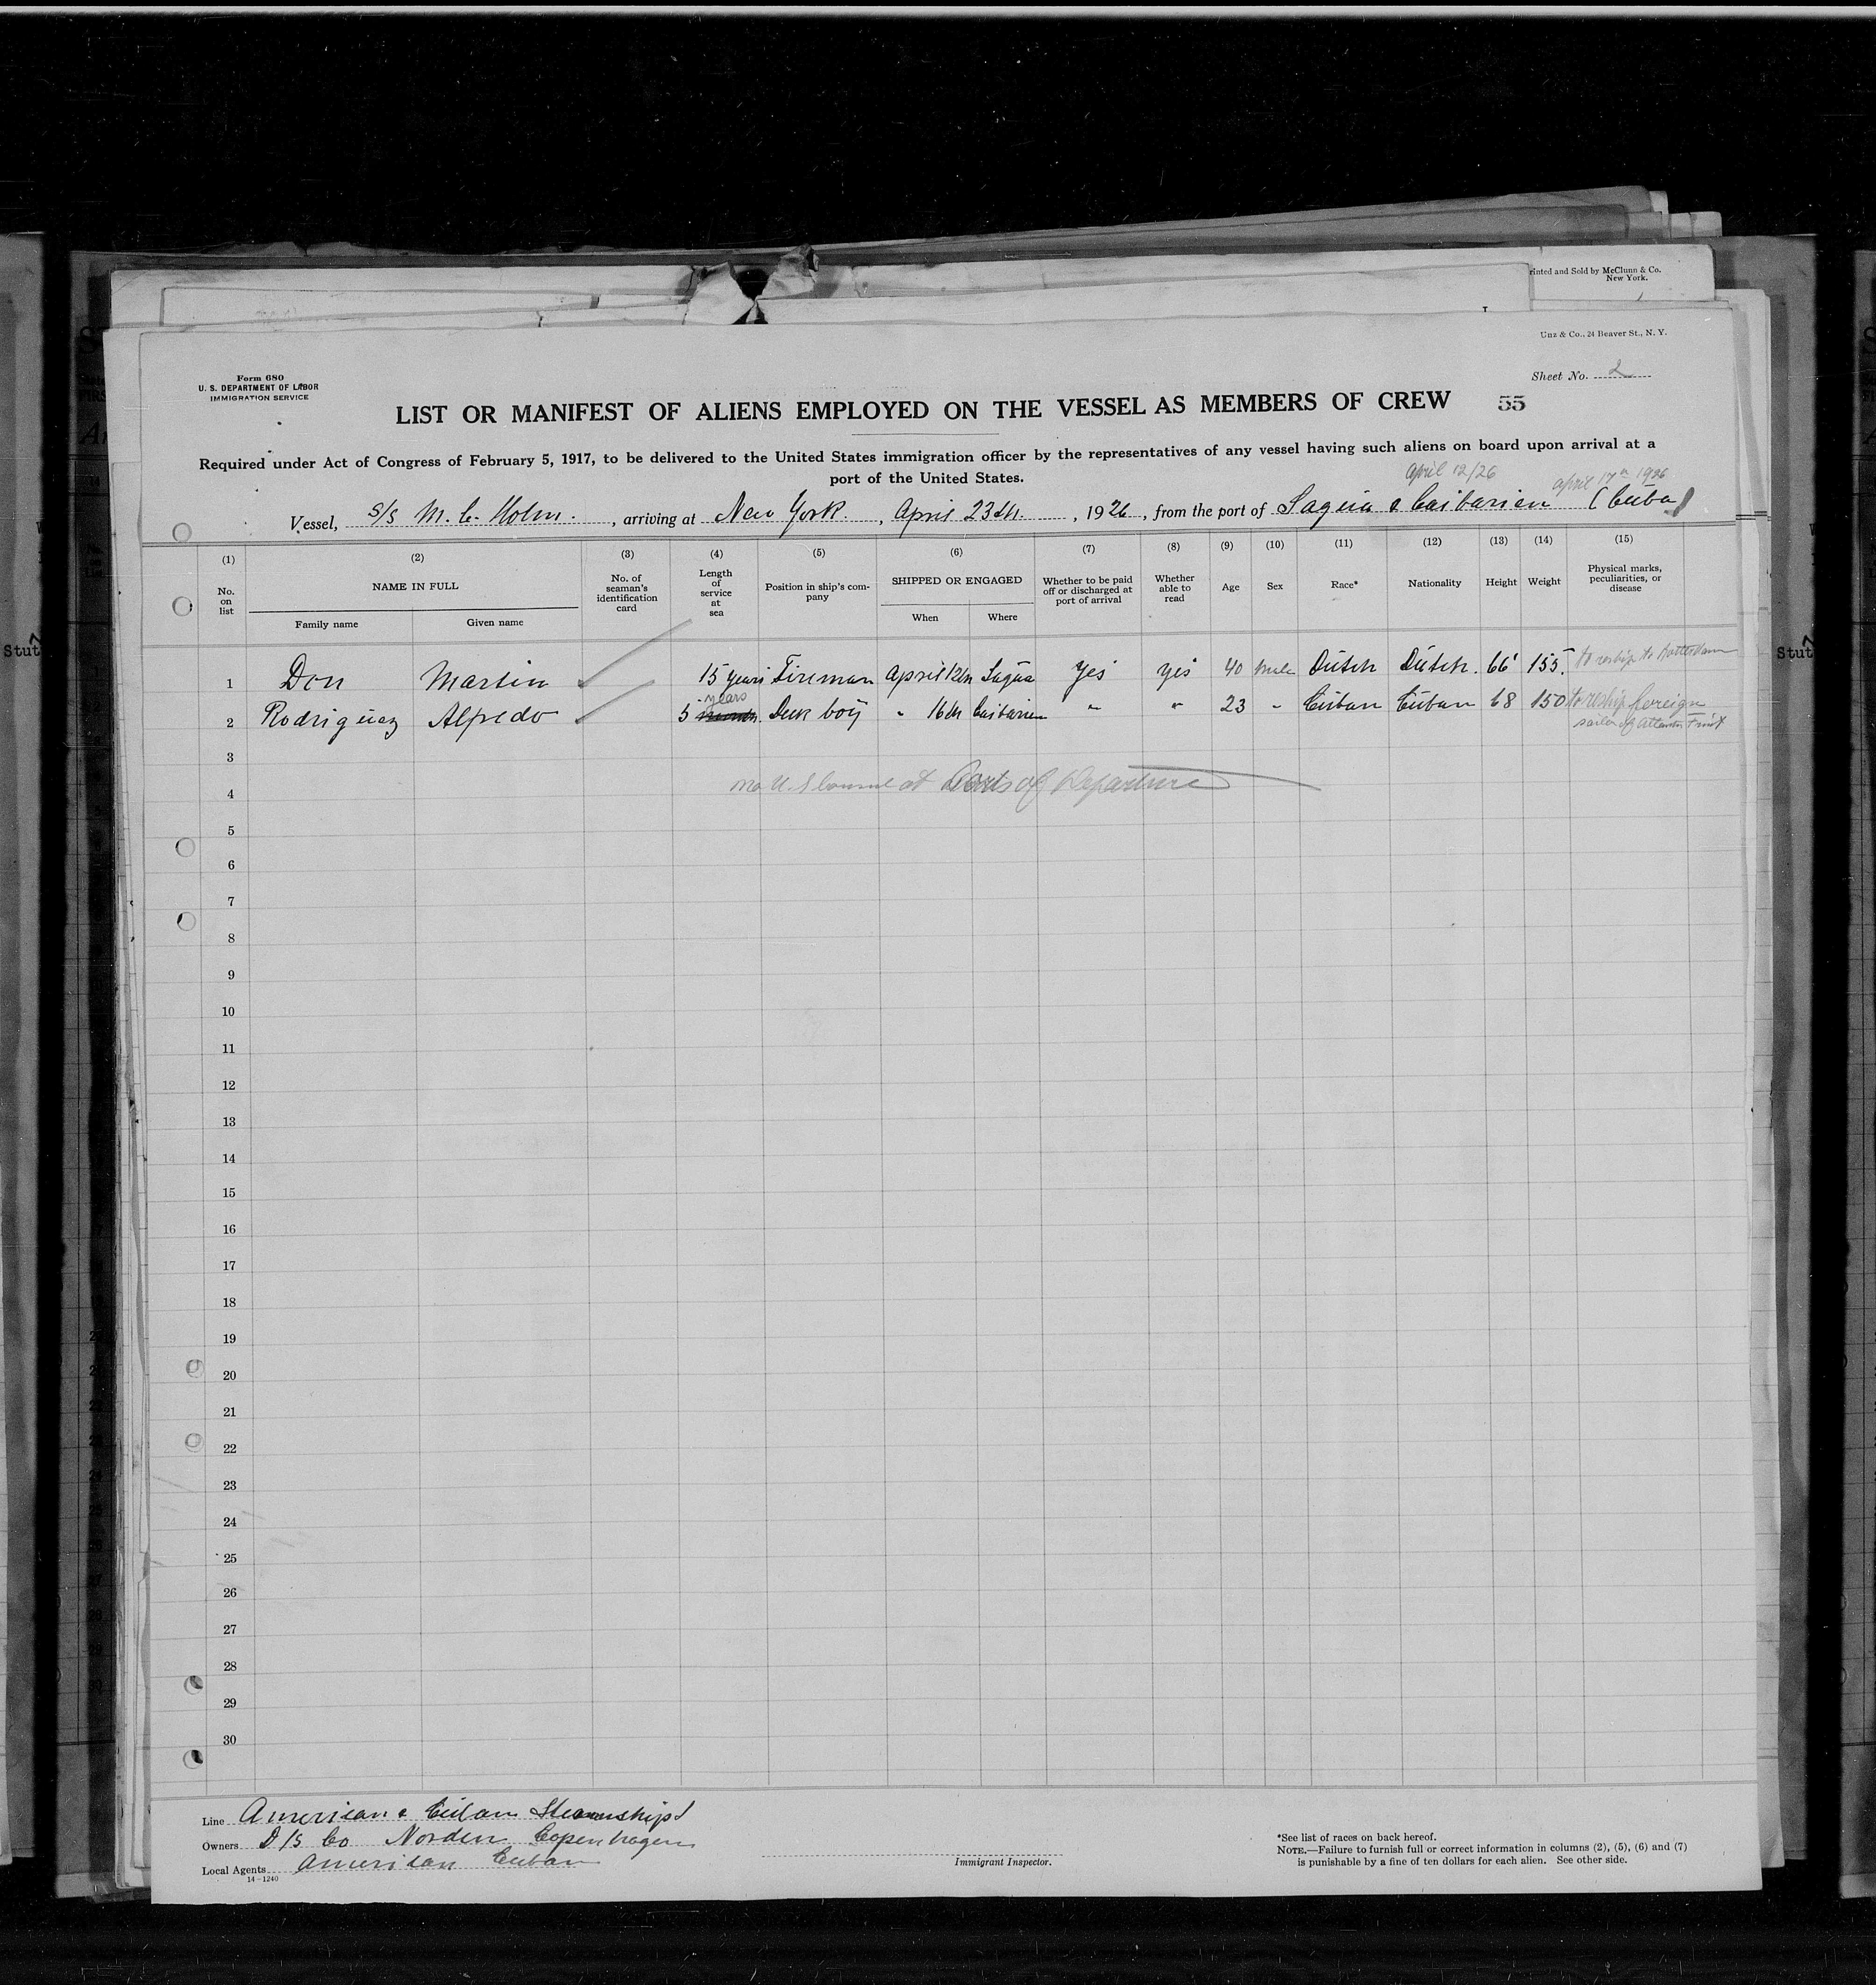 Printed and Sold by McClunn & Co.
New York.
Unz & Co., 24 Beaver St., N. Y.
Form 680
U. S. DEPARTMENT OF LABOR
IMMIGRATION SERVICE
Sheet No. 2
LIST OR MANIFEST OF ALIENS EMPLOYED ON THE VESSEL AS MEMBERS OF CREW 55
Required under Act of Congress of February 5, 1917, to be delivered to the United States immigration officer by the representatives of any vessel having such aliens on board upon arrival at a
port of the United States.
April 12/26 April 17th 1926
Vessel, S/S M. C. Holm., arriving at New York, April 23th, 1926, from the port of Sagua & Caibarien (Cuba)
(1) (2) (3) (4) (5) (6) (7) (8) (9) (10) (11) (12) (13) (14) (15)
No. on list
NAME IN FULL
Family name
Given name
No. of seaman's identification card
Length of service at sea
Position in ship's company
SHIPPED OR ENGAGED
When
Where
Whether to be paid off or discharged at port of arrival
Whether able to read
Age
Sex
Race*
Nationality
Height
Weight
Physical marks, peculiarities, or disease
1 Don Martin 15 years Fireman April 12th Sagua Yes yes 40 male Dutch Dutch. 66' 155. to reship to Rotterdam
2 Rodriguez Alfredo 5 years Deck boy " 16th Caibarien " " 23 " Cuban Cuban 68 150 to reship foreign
3
no U.S Consul at Ports of Departure
4
5
6
7
8
9
10
11
12
13
14
15
16
17
18
19
20
21
22
23
24
25
26
27
28
29
30
Line American & Cuban Steamship
Owners D/S Co Norden Copenhagen
Local Agents American Cuban
14-1240
Immigrant Inspector.
*See list of races on back hereof.
NOTE.—Failure to furnish full or correct information in columns (2), (5), (6) and (7)
is punishable by a fine of ten dollars for each alien. See other side.
Stut
Stut